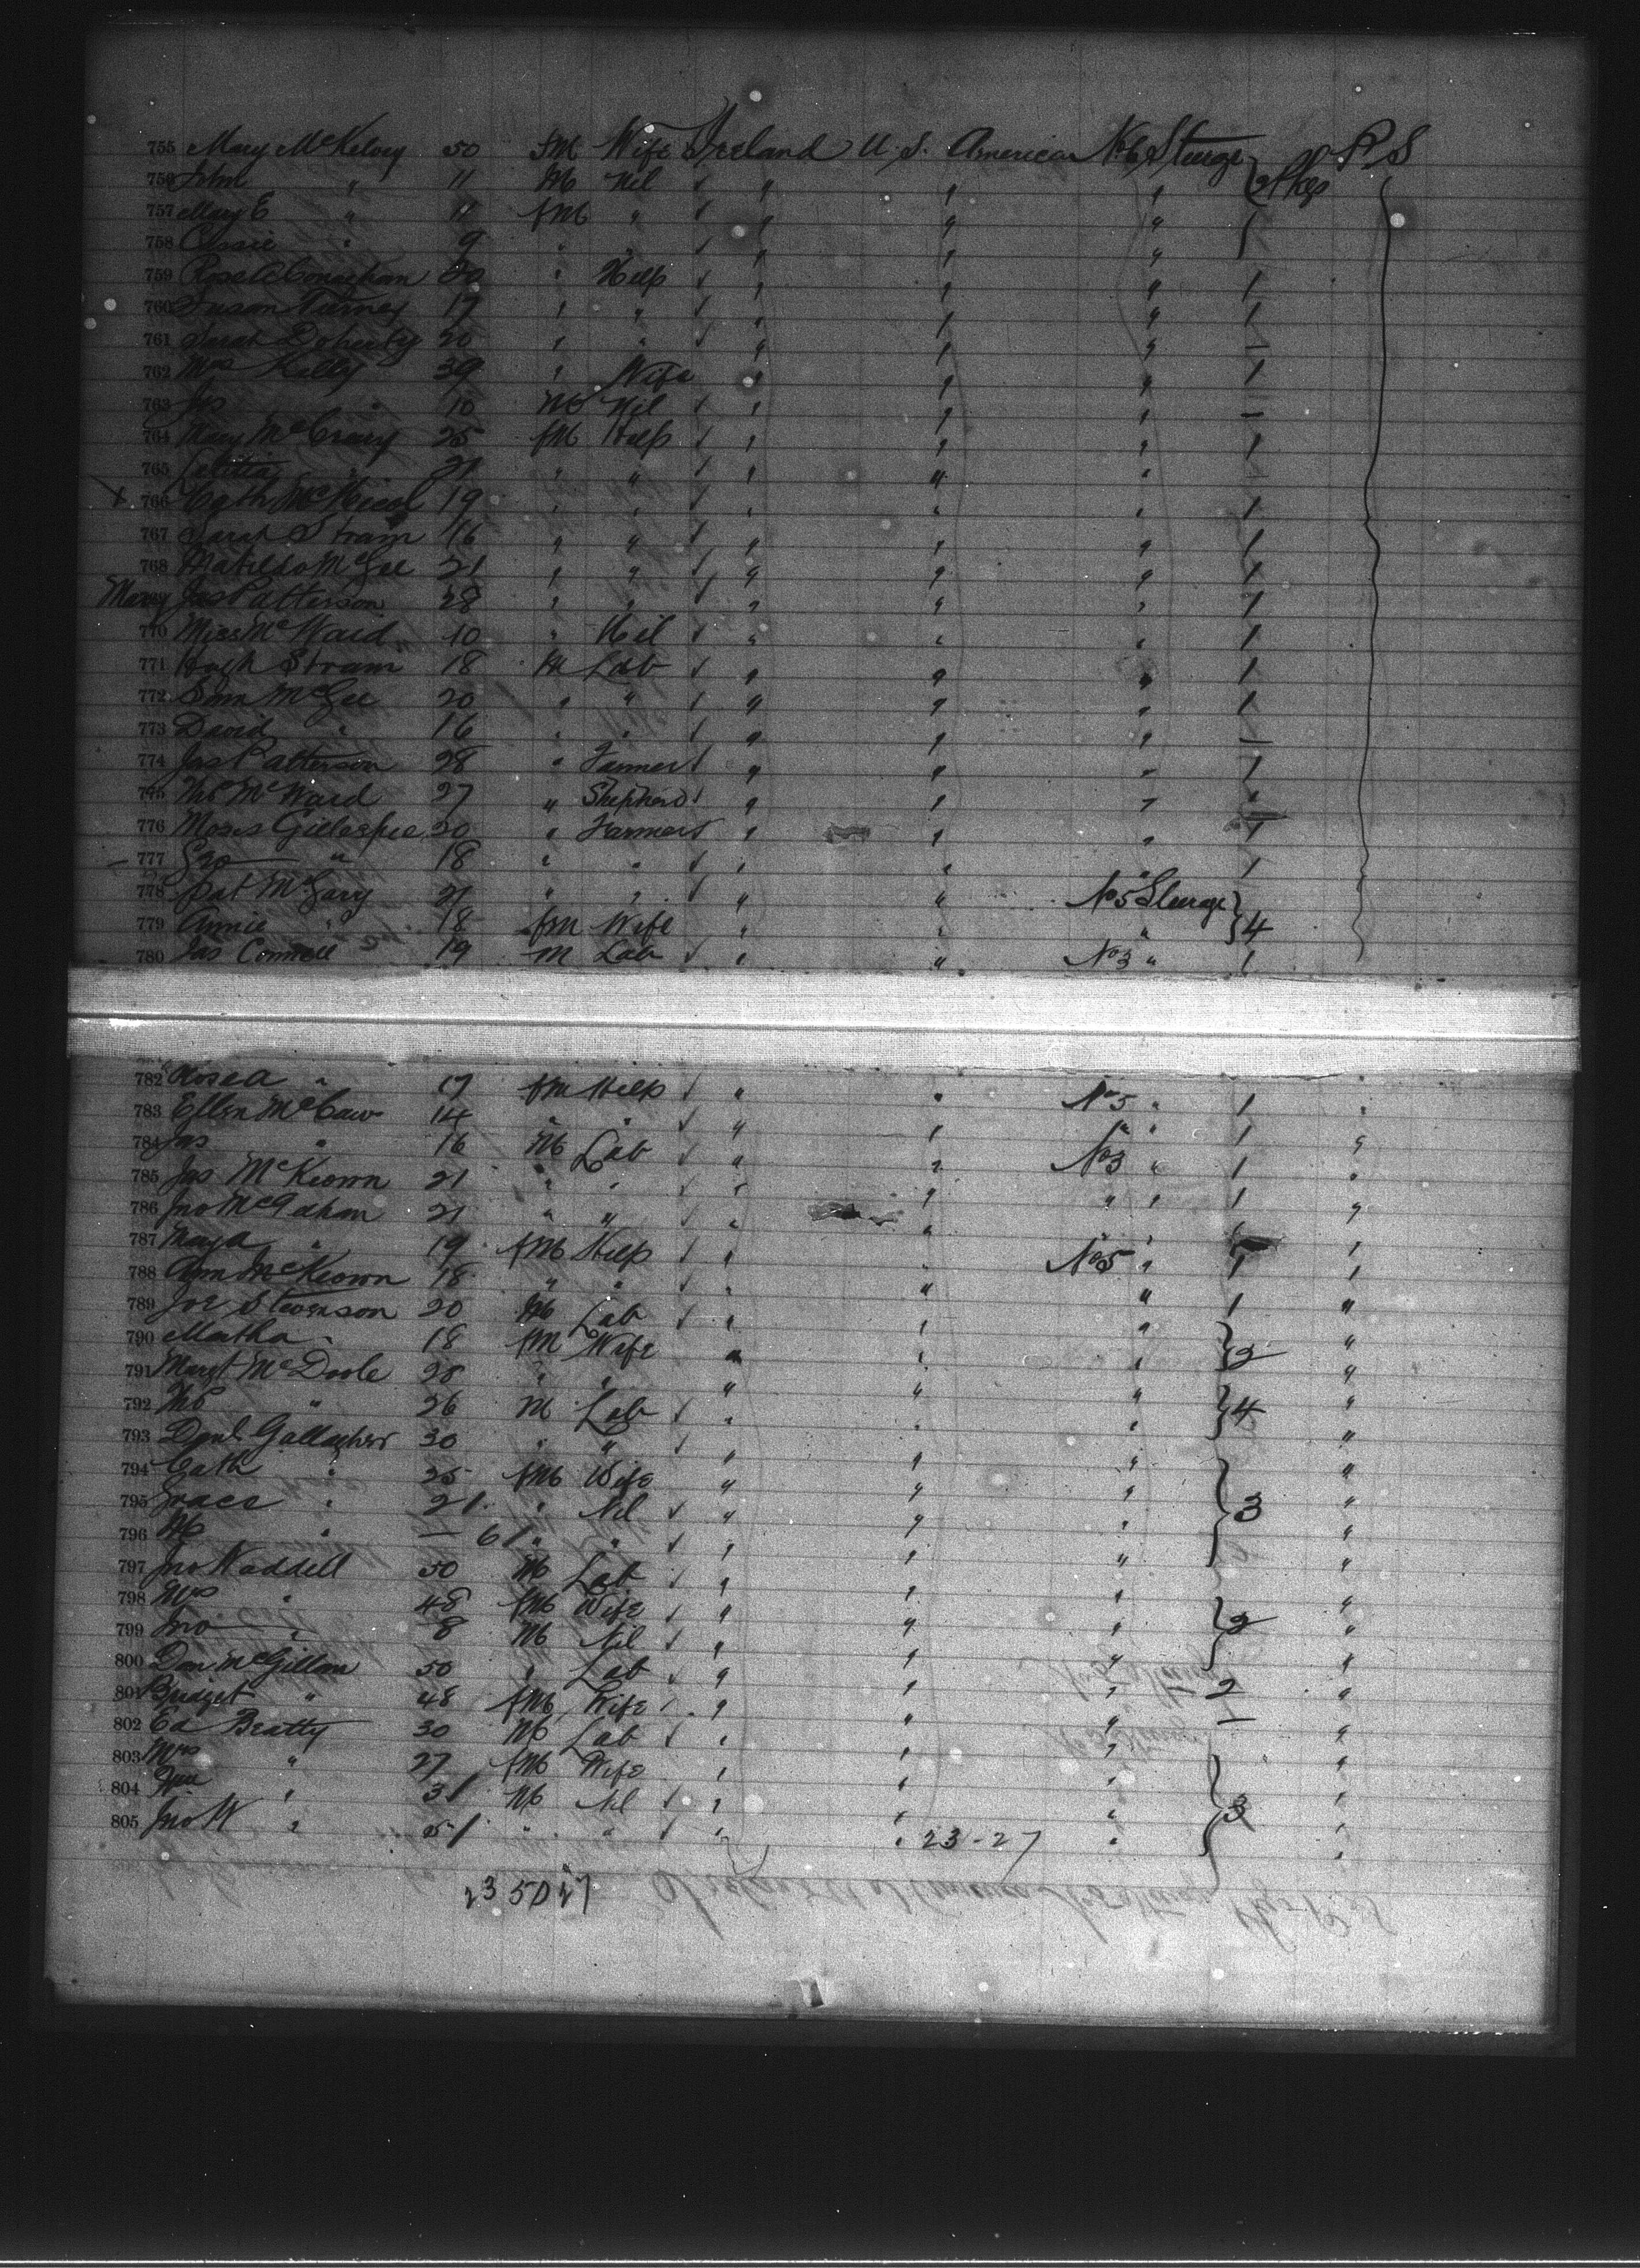 755 Mary McKelvey 50 FM Wife Ireland U.S. America No 6 Steerge 2 Pkgs P S
756 John " 11 M Nil " " "
757 Mary E " 11 FM " " " " 1
758 Cissie " 9 " " " " "
759 Rose A Conaghan 30 " Help " " " 1
760 Susan Tierney 17 " " " " " 1
761 Sarah Doherty 20 " " " " " —
762 Mrs Kelly 39 " Wife " " " 1
763 Jas " 10 M Nil " " " —
764 Mary McCrary 25 FM Help " " " 1
765 Letitia " 21 " " " " " —
x 766 Cath McNicol 19 " " " " " 1
767 Sarah Strain 16 " " " " " 1
768 Matilda McGee 21 " " " " " 1
Mary Jas Patterson 28 " " " " " 1
770 Miss McWard 10 " Nil " " " 1
771 Hugh Strain 18 M Lab " " " 1
772 Sam McGee 20 " " " " " 1
773 David " 16 " " " " " —
774 Jas Patterson 28 " Farmer " " " 1
775 Tho McWard 27 " Shepherd " " "
776 Moses Gillespie 20 " Farmer " " " 1
777 Geo " 18 " " " " " 1
778 Pat McGary 21 " " " " No 5 Steerage
779 Annie " 18 FM Wife " " " 4
780 Jas Connell 19 M Lab " " No 3 " 1
782 Rose A " 17 FM Help " " No 5 " 1 "
783 Ellen McCaw 14 " " " " " " 1 "
784 Jas " 16 M Lab " " No 3 " 1 "
785 Jas McKeown 21 " " " " " " 1 "
786 Jno McGahan 21 " " " " "
787 Mary A " 19 FM Help " " No 5 " 1 "
788 Ann McKeown 18 " " " " " 1 "
789 Joe Stevenson 20 M Lab " " " "
790 Martha " 18 FM Wife " " " 2 "
791 Margt McDoole 28 " " " " " "
792 Tho " 26 M Lab " " " 4 "
793 Danl Gallagher 30 " " " " " "
794 Cath " 25 FM Wife " " " "
795 Grace " 2/ " Nil " " " 3 "
796 " — 6/ " " " " " "
797 Jno Waddell 50 M Lab " " " "
798 Mrs " 48 FM Wife " " " 2 "
799 Jno " 8 M Nil " " " "
800 Dan McGillan 50 " Lab " " " 2 "
801 Bridget " 48 FM Wife " " " — "
802 Ed Beatty 30 M Lab " " " "
803 Mrs " 27 FM Wife " " " "
804 Wm " 3/ M Nil " " " 3 "
805 Jno W " 5/ " " " " 23-27 " "
23 50 27